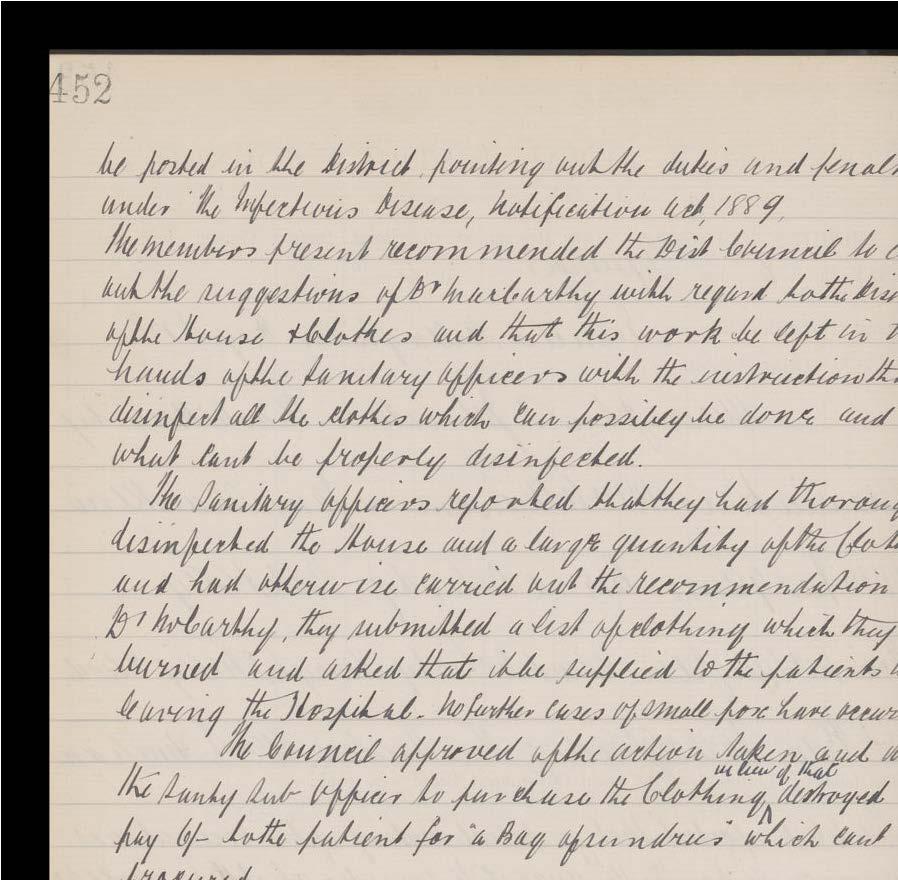 452
be posted in the District, pointing out the duties and penal
under "The Infectious Disease, Notification Act, 1889,
The members present recommended the Dist Council to c
out the suggestions of Dr MacCarthy with regard to the Dis
of the House & Clothes and that this work be left in t
hands of the Sanitary officers with the instruction th
disinfect all the clothes which can possibly be done and
what cant be properly disinfected.
The Sanitary officers reported that they had thoroug
disinfected the House and a large quantity of the Clot
and had otherwise carried out the recommendation
Dr McCarthy, they submitted a list of clothing which they
burned and asked that it be supplied to the patients
leaving the Hospital. No further cases of small pox have occur
The Council approved of the action taken and
in lieu of that
the Santy Sub Officer to purchase the Clothing ^ destroyed
pay 6/- to the patient for "a Bag of sundries" which cant
procured